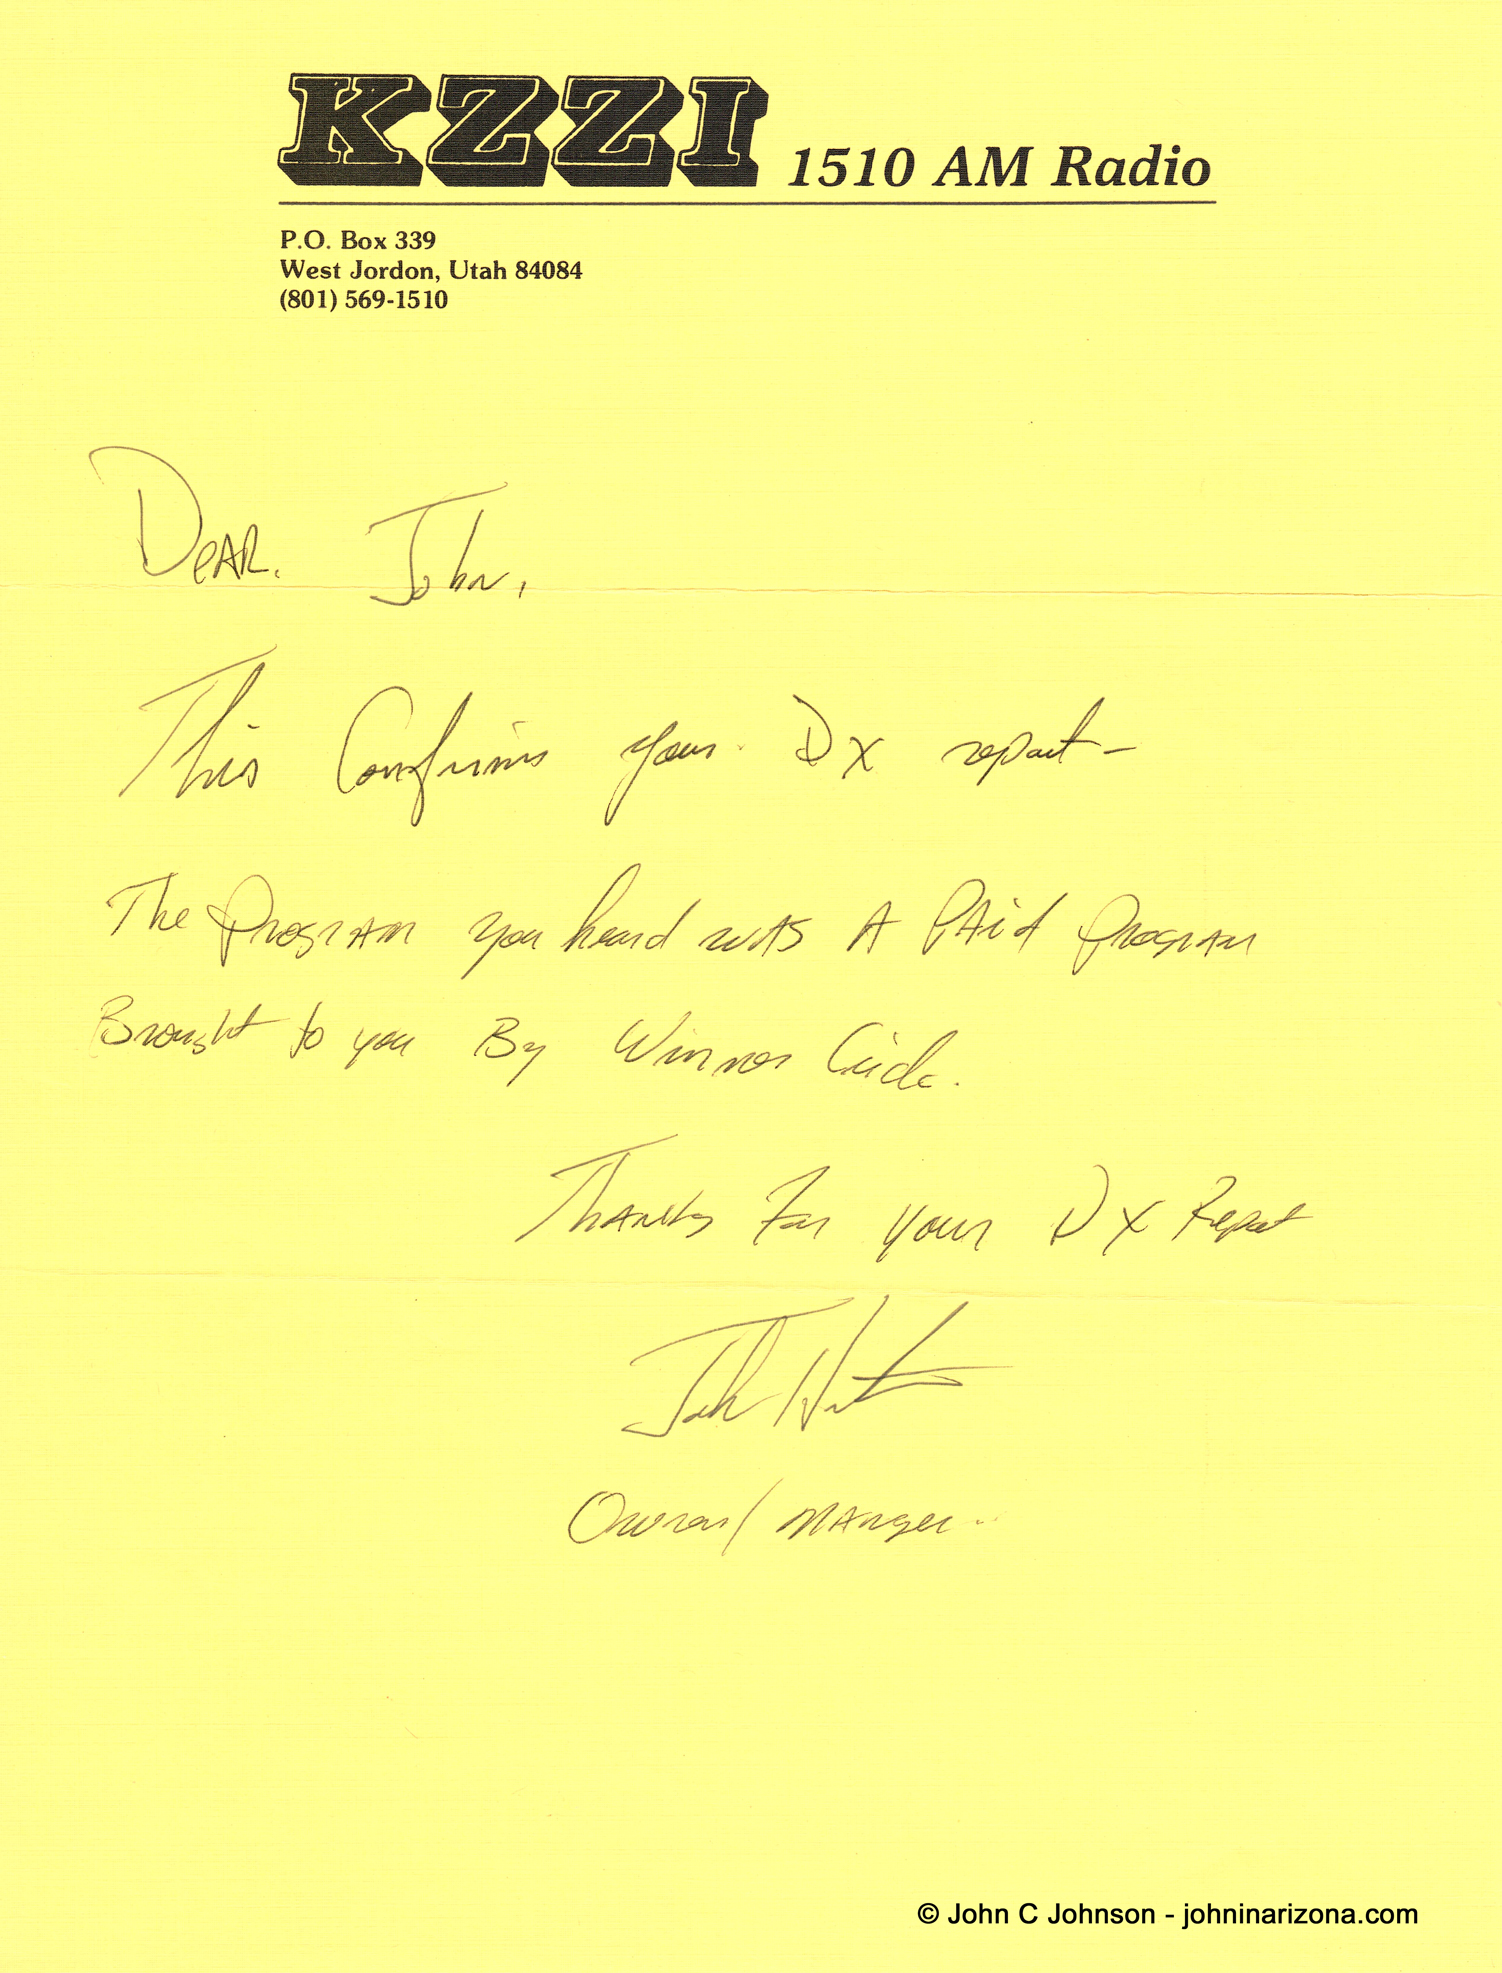 KZZI 1510 AM Radio
P.O. Box 339
West Jordon, Utah 84084
(801) 569-1510
Dear. John,
This Confirms your DX report -
The Program you heard was A PAid Program
Brought to you By Winner Circle.
Thanks For your DX Report
John
Owner/ Manager
© John C Johnson - johninarizona.com